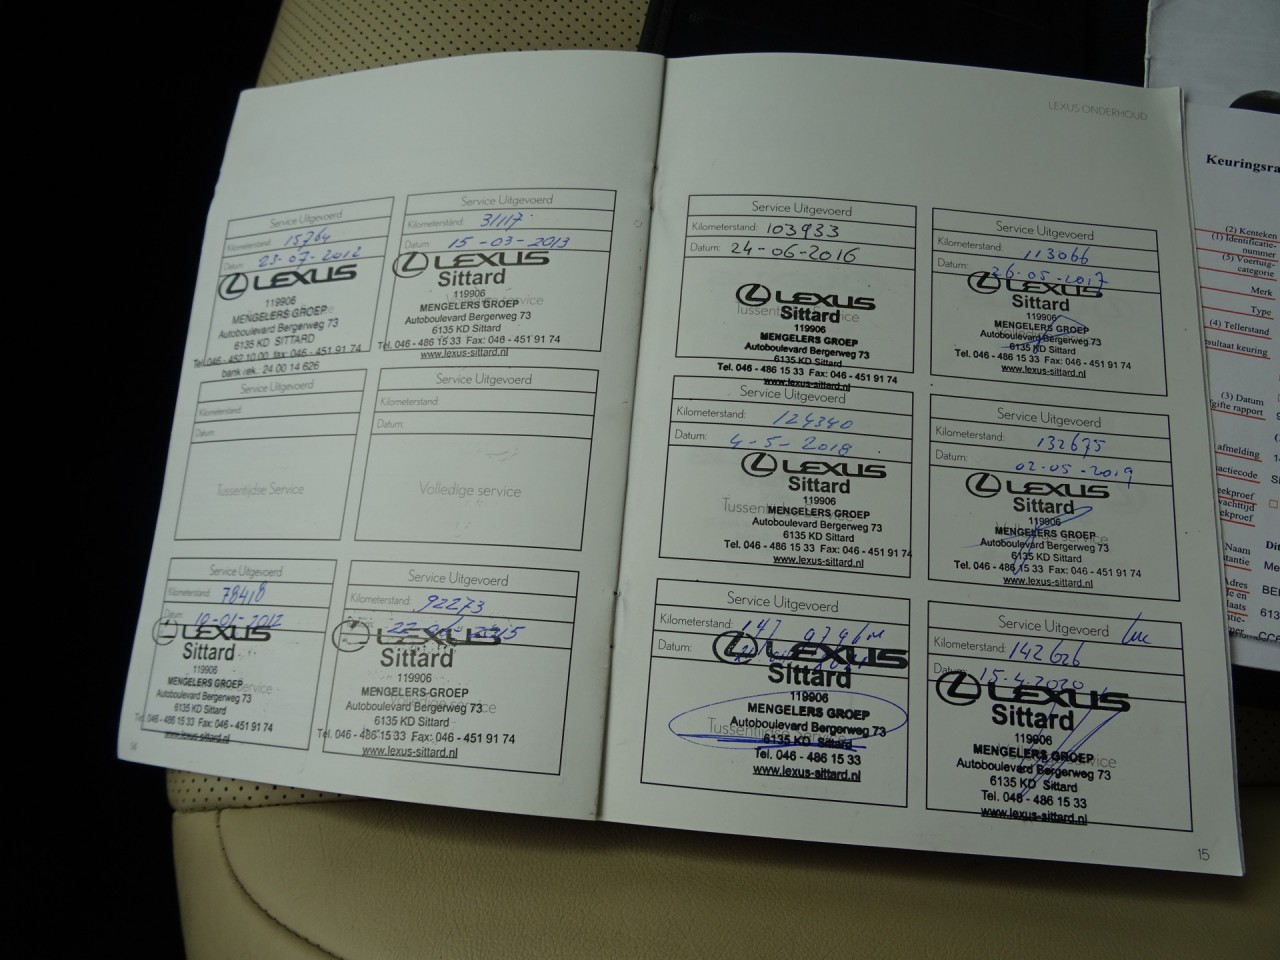 Service Uitgevoerd
Kilometerstand: 15764
Datum: 23-07-2012
LEXUS
119906
MENGELERS GROEP
Autoboulevard Bergerweg 73
6135 KD SITTARD
Tel. 046 - 452 10 00 fax: 046 - 451 91 74
bank rek.: 24 00 14 626
Service Uitgevoerd
Kilometerstand: 31117
Datum: 15-03-2013
LEXUS
Sittard
119906
MENGELERS GROEP
Autoboulevard Bergerweg 73
6135 KD Sittard
Tel. 046 - 486 15 33 Fax: 046 - 451 91 74
www.lexus-sittard.nl
Service Uitgevoerd
Kilometerstand:
Datum:
Tussentijdse Service
Service Uitgevoerd
Kilometerstand:
Datum:
Volledige service
Service Uitgevoerd
Kilometerstand: 78418
Datum:
LEXUS
Sittard
119906
MENGELERS GROEP
Autoboulevard Bergerweg 73
6135 KD Sittard
Tel. 046 - 486 15 33 Fax: 046 - 451 91 74
www.lexus-sittard.nl
Service Uitgevoerd
Kilometerstand: 92273
LEXUS
Sittard
119906
MENGELERS GROEP
Autoboulevard Bergerweg 73
6135 KD Sittard
Tel. 046 - 486 15 33 Fax: 046 - 451 91 74
www.lexus-sittard.nl
14
LEXUS ONDERHOUD
Service Uitgevoerd
Kilometerstand: 103933
Datum: 24-06-2016
LEXUS
Sittard
119906
MENGELERS GROEP
Autoboulevard Bergerweg 73
6135 KD Sittard
Tel. 046 - 486 15 33 Fax: 046 - 451 91 74
www.lexus-sittard.nl
Service Uitgevoerd
Kilometerstand: 113066
Datum: 26-05-2017
LEXUS
Sittard
119906
MENGELERS GROEP
Autoboulevard Bergerweg 73
6135 KD Sittard
Tel. 046 - 486 15 33 Fax: 046 - 451 91 74
www.lexus-sittard.nl
Service Uitgevoerd
Kilometerstand: 124340
Datum: 4-5-2018
LEXUS
Sittard
119906
MENGELERS GROEP
Autoboulevard Bergerweg 73
6135 KD Sittard
Tel. 046 - 486 15 33 Fax: 046 - 451 91 74
www.lexus-sittard.nl
Service Uitgevoerd
Kilometerstand: 132675
Datum: 02-05-2019
LEXUS
Sittard
119906
MENGELERS GROEP
Autoboulevard Bergerweg 73
6135 KD Sittard
Tel. 046 - 486 15 33 Fax: 046 - 451 91 74
www.lexus-sittard.nl
Service Uitgevoerd
Kilometerstand: 147
Datum:
LEXUS
Sittard
119906
MENGELERS GROEP
Autoboulevard Bergerweg 73
6135 KD Sittard
Tel. 046 - 486 15 33
www.lexus-sittard.nl
Service Uitgevoerd
Kilometerstand: 142626
Datum: 15-4-2020
LEXUS
Sittard
119906
MENGELERS GROEP
Autoboulevard Bergerweg 73
6135 KD Sittard
Tel. 046 - 486 15 33
www.lexus-sittard.nl
15
Keuringsra
(2) Kenteken
(1) Identificatie-
nummer
(5) Voertuig-
categorie
Merk
Type
(4) Tellerstand
sultaat keuring
(3) Datum
fgifte rapport
afmelding
actiecode
ekproef
wachttijd
ekproef
Naam
tantie
Adres